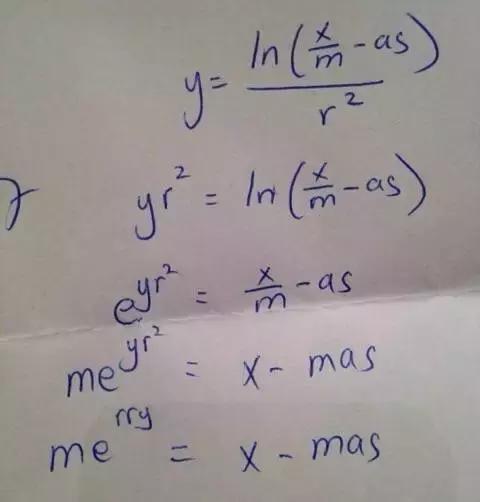 y = ln(x/m - as) / r²
yr² = ln(x/m - as)
e^(yr²) = x/m - as
me^(yr²) = x - mas
me^(rry) = x - mas